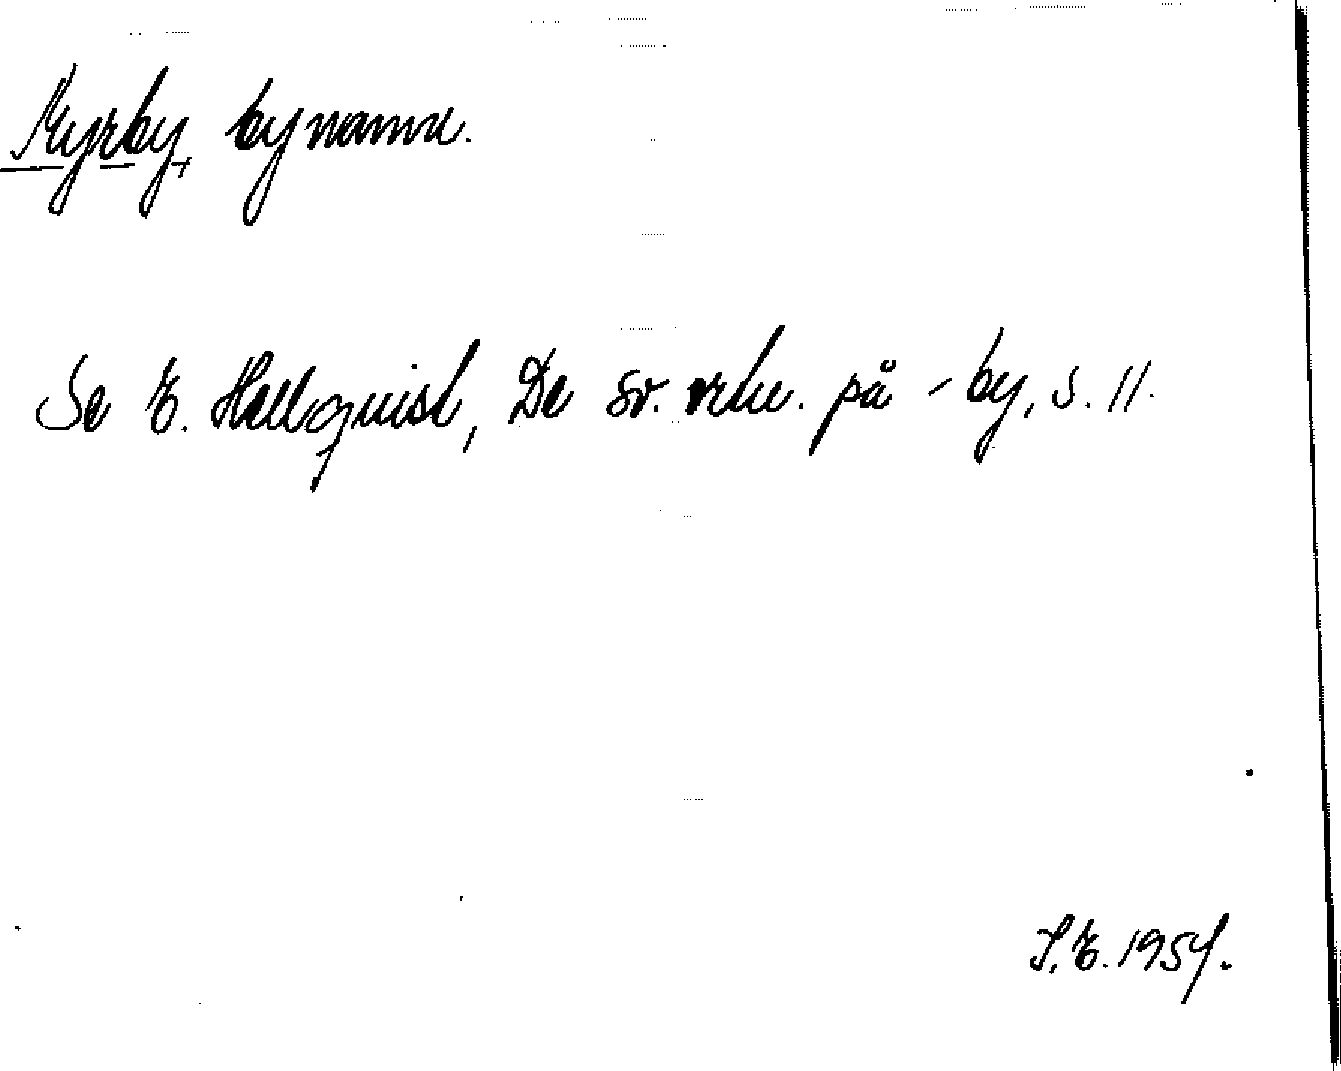 Kyrby, bynamn.
Se E. Hellquist, De sv. ortn. på -by, s. 11.
S.E. 1954.